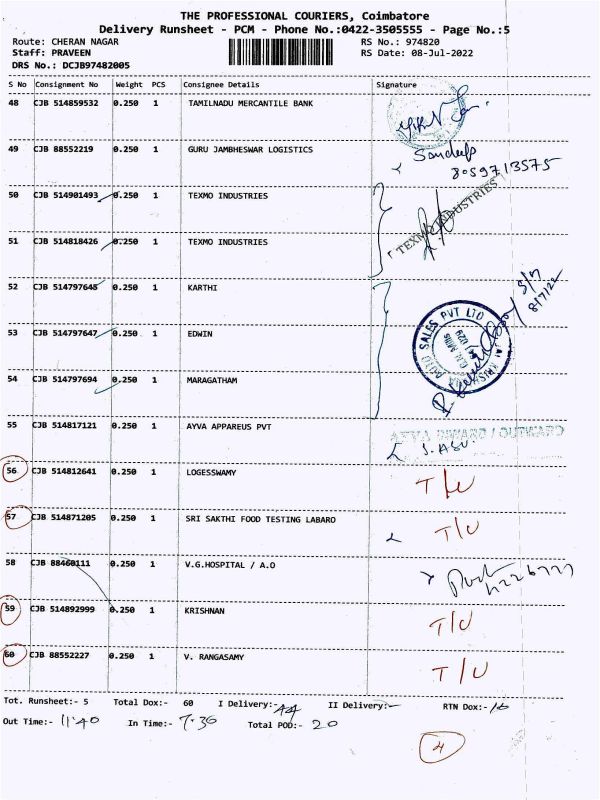 THE PROFESSIONAL COURIERS, Coimbatore
Delivery Runsheet - PCM - Phone No.:0422-3505555 - Page No.:5
Route: CHERAN NAGAR RS No.: 974820
Staff: PRAVEEN RS Date: 08-Jul-2022
DRS No.: DCJB97482005
S No Consignment No Weight PCS Consignee Details Signature
48 CJB 514859532 0.250 1 TAMILNADU MERCANTILE BANK
49 CJB 88552219 0.250 1 GURU JAMBHESWAR LOGISTICS Sandeep
8059713575
50 CJB 514901493 0.250 1 TEXMO INDUSTRIES
TEXMO INDUSTRIES
51 CJB 514818426 0.250 1 TEXMO INDUSTRIES
52 CJB 514797645 0.250 1 KARTHI
8/7/22
53 CJB 514797647 0.250 1 EDWIN
AUTO SALES PVT LTD
54 CJB 514797694 0.250 1 MARAGATHAM
55 CJB 514817121 0.250 1 AYVA APPAREUS PVT
AYVA INWARD / OUTWARD
56 CJB 514812641 0.250 1 LOGESSWAMY T/U
57 CJB 514871205 0.250 1 SRI SAKTHI FOOD TESTING LABARO T/U
58 CJB 88460111 0.250 1 V.G.HOSPITAL / A.O
59 CJB 514892999 0.250 1 KRISHNAN T/U
60 CJB 88552227 0.250 1 V. RANGASAMY T/U
Tot. Runsheet:- 5 Total Dox:- 60 I Delivery:- 44 II Delivery:- RTN Dox:- 16
Out Time:- 11:40 In Time:- 7.30 Total POD:- 20
4